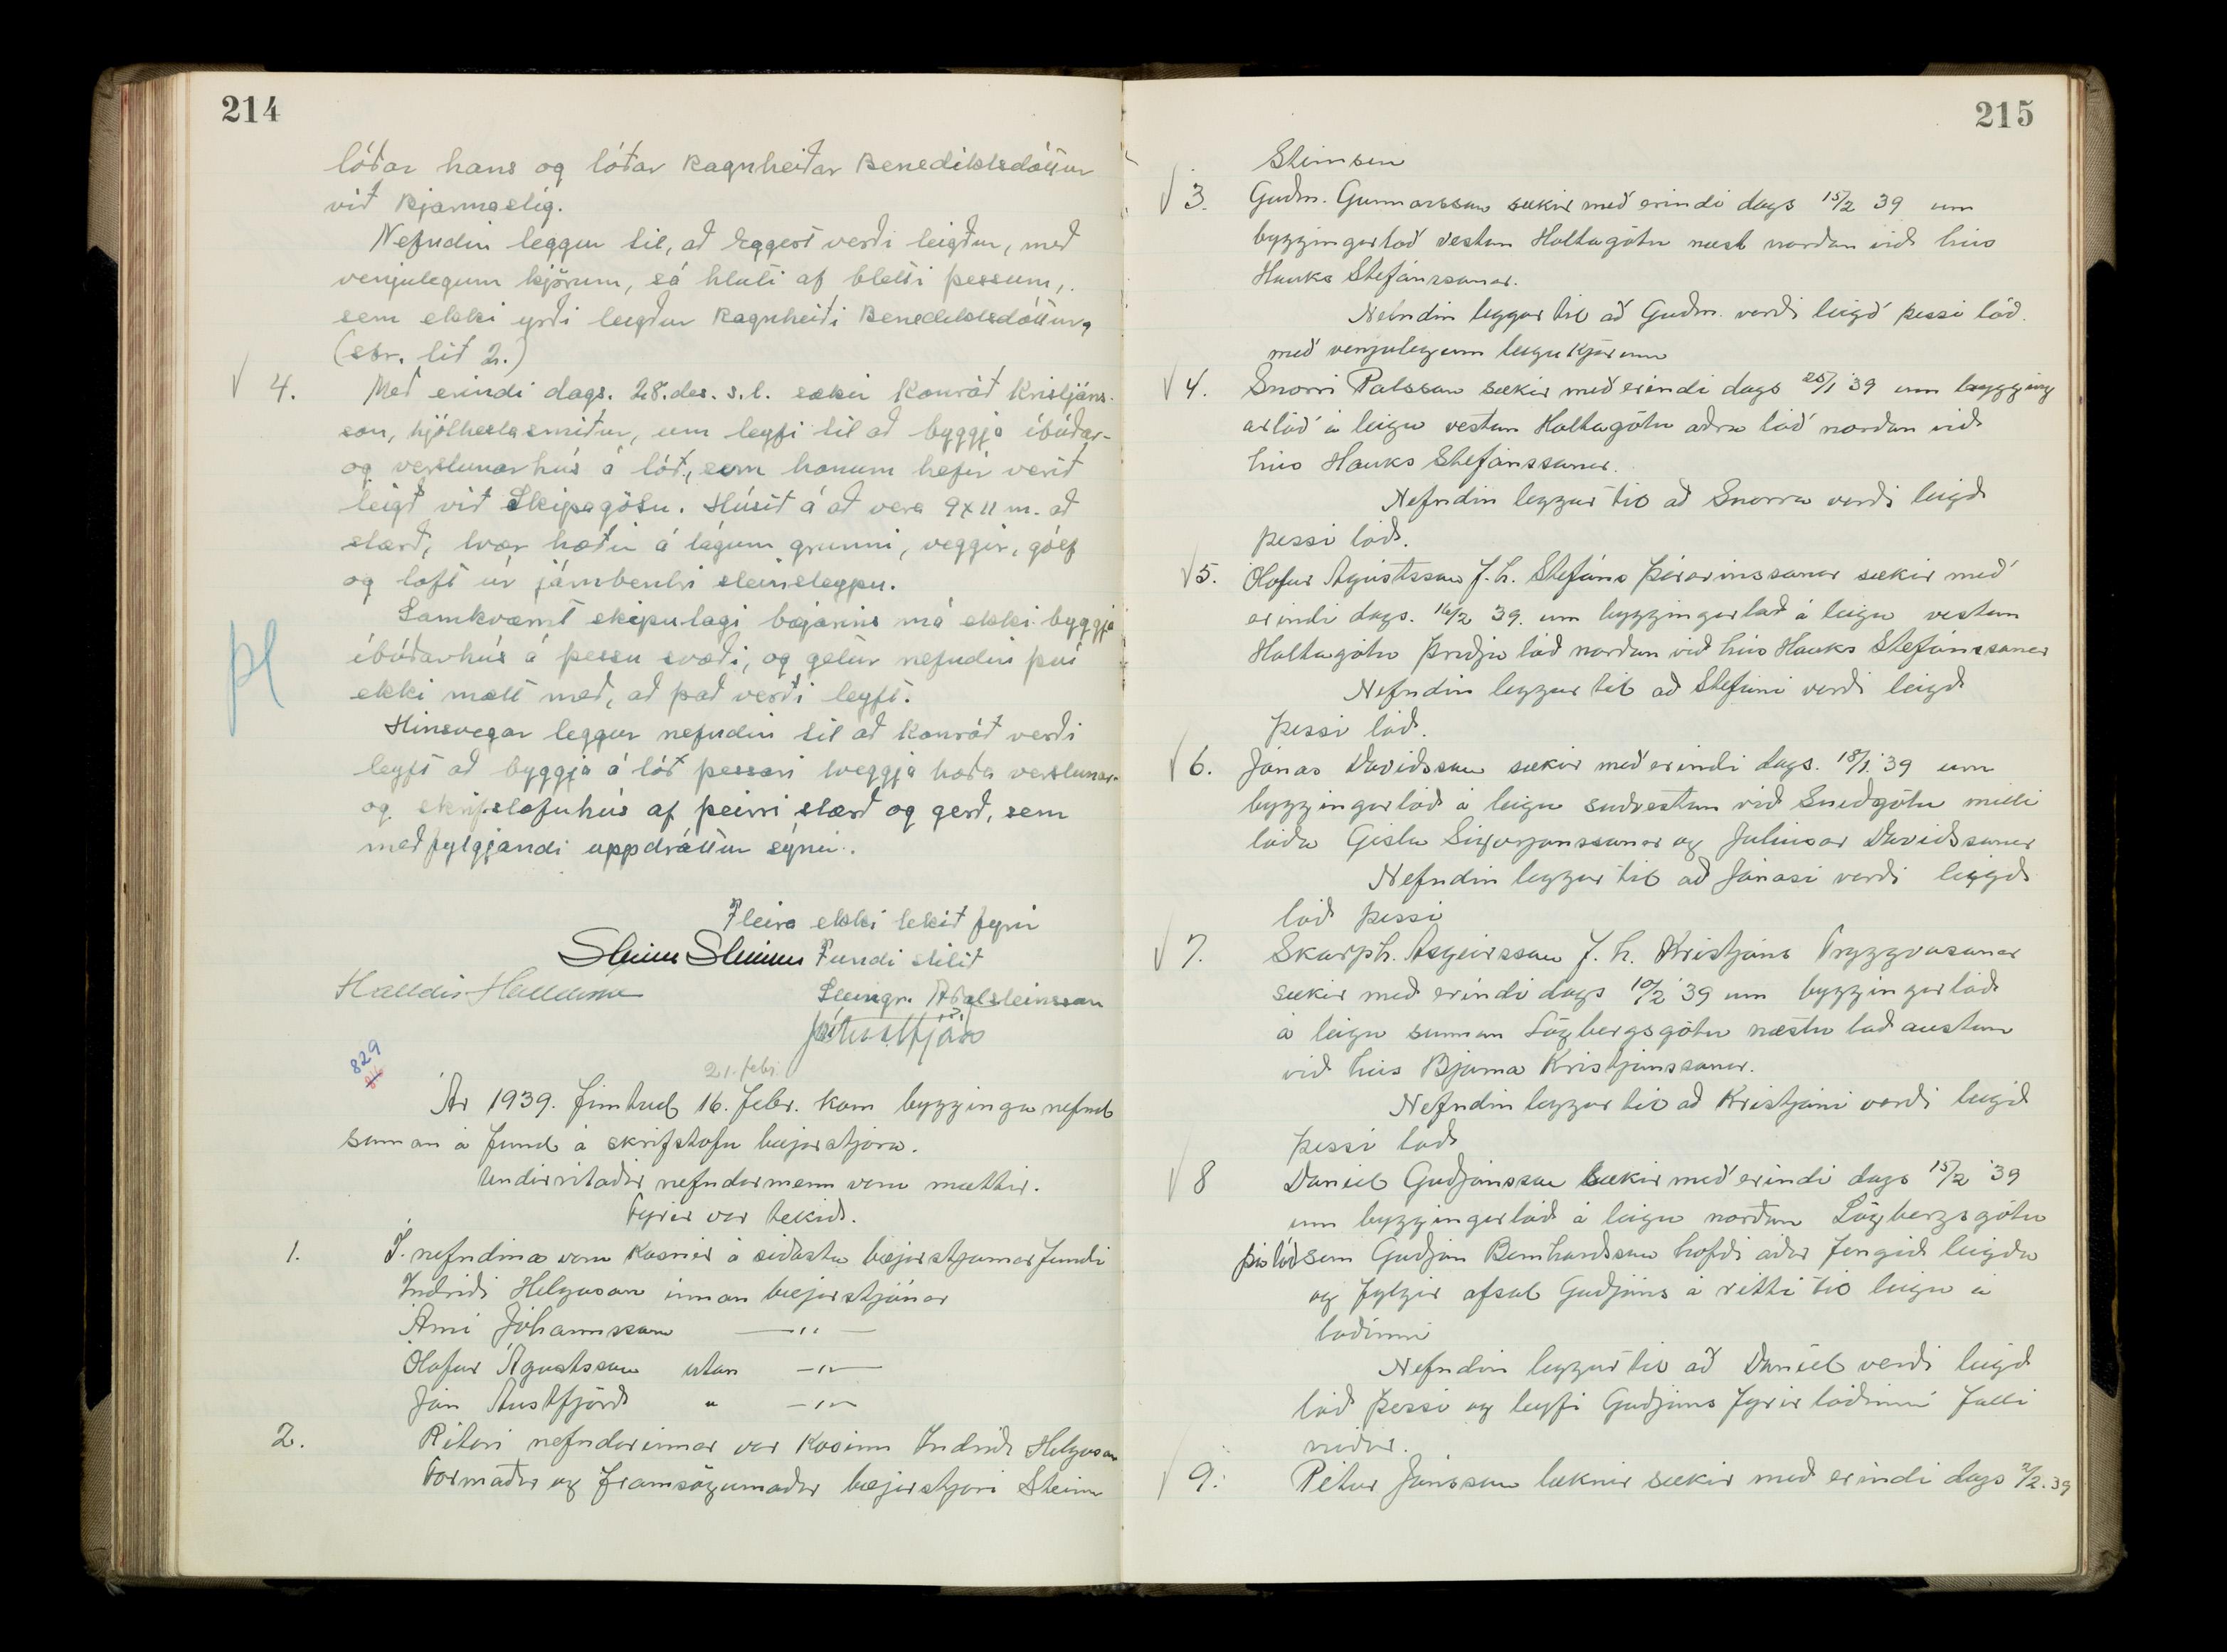 214
lóðar hans og lóðar Ragnheiðar Benediktsdóttur
við Bjarmastíg.
Nefndin leggur til, að Eggert verði leigður, með
venjulegum kjörum, sá hluti af bletti þessum,
sem ekki yrði leigður Ragnheiði Benediktsdóttur,
(sbr. lið 2.)
4. Með erindi dags. 28. des. s.l. sækir Konráð Kristjáns-
son, hjólhestasmiður, um leyfi til að byggja íbúðar-
og verslunarhús á lóð, sem honum hefir verið
leigð við Skipagötu. Húsið á að vera 9x11 m. að
stærð, tvær hæðir á lágum grunni, veggir, gólf
og loft úr járnbentri steinsteypu.
Samkvæmt skipulagi bæjarins má ekki byggja
íbúðarhús á þessu svæði, og getur nefndin því
ekki mælt með, að það verði leyft.
pl
Hinsvegar leggur nefndin til að Konráð verði
leyft að byggja á lóð þessari tveggja hæða verslunar-
og skrifstofuhús af þeirri stærð og gerð, sem
meðfylgjandi uppdráttur sýnir.
Fleira ekki tekið fyrir
Steinn Steinsen Fundi slitið
Halldór Halldórsson Steingr. Aðalsteinsson
829
21. febr.
Ár 1939. fimtud 16. febr. kom bygginganefnd
saman á fund á skrifstofu bæjarstjóra.
Undirritaðir nefndarmenn voru mættir.
Fyrir var tekið.
1. Í nefndina voru kosnir á siðasta bæjarstjornarfundi
Indriði Helgason innan bæjarstjónar
Árni Jóhannsson —"—
Ólafur Ágústsson utan —"—
Jón Austfjörð " —"—
2. Ritari nefndarinnar var kosinn Indriði Helgason
Formaður og framsögumaður bæjarstjori Steinn
215
Steinsen
3. Guðm. Gunnarsson sækir með erindi dags 15/2 39 um
byggingarlóð vestan Holtagötu næst norðan við hús
Hauks Stefánssonar.
Nefndin leggur til að Guðm. verði leigð þessi lóð.
með venjulegum leigukjörum
4. Snorri Pálsson sækir með erindi dags 25/1 '39 um bygging
arlóð á leigu vestan Holtagötu aðra lóð norðan við
hús Hauks Stefánssonar.
Nefndin leggur til að Snorra verði leigð
þessi lóð.
5. Ólafur Ágústsson f.h. Stefáns Þórarinssonar sækir með
erindi dags. 16/2 '39. um byggingarlóð á leigu vestan
Holtagötu þriðju lóð norðan við hús Hauks Stefánssonar
Nefndin leggur til að Stefáni verði leigð
þessi lóð.
6. Jónas Davíðsson sækir með erindi dags. 18/1 '39 um
byggingarlóð á leigu suðvestan við Sniðgötu milli
lóða Gísla Sigurjonssonar og Júlíusar Davíðssonar
Nefndin leggur til að Jónasi verði leigð
lóð þessi
7. Skarph. Ásgeirsson f. h. Kristjáns Tryggvasonar
sækir með erindi dags 10/2 '39 um byggingarlóð
á leigu sunnan Lögbergsgötu næstu lóð austan
við hús Bjarna Kristjánssonar.
Nefndin leggur til að Kristjáni verði leigð
þessi lóð
8 Daníel Guðjónsson sækir með erindi dags 15/2 '39
um byggingarlóð á leigu norðan Lögbergsgötu
þá lóð sem Guðjón Bernharðsson hafði áður fengið leigða
og fylgir afsal Guðjóns á rétti til leigu á
lóðinni
Nefndin leggur til að Daníel verði leigð
lóð þessi og leyfi Guðjóns fyrir lóðinni falli
niður.
9. Pétur Jónsson læknir sækir með erindi dags 2/2. 39